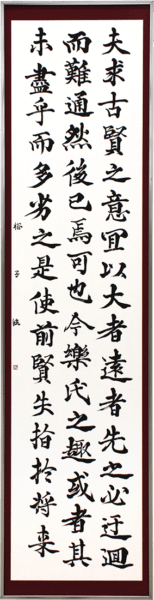 夫求古賢之意宜以大者遠者先之必迂迴
而難通然後已焉可也今樂氏之趣或者其
未盡乎而多劣之是使前賢失指於將來
裕子臨